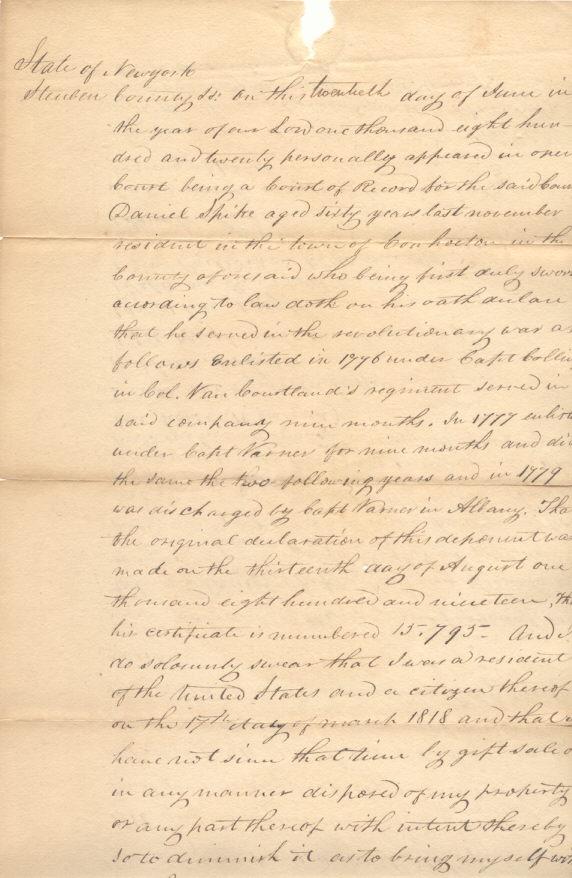 State of Newyork
Steuben County Ss: On this twentieth day of June in
the year of our Lord one thousand eight hun-
dred and twenty personally appeared in open
Court being a Court of Record for the said Coun
Daniel Spike aged sixty years last november
resident in the town of Conhocton in the
County aforesaid who being first duly sworn
acording to law doth on his oath declare
that he served in the revolutionary war as
follows Enlisted in 1776 under Capt Collin
in Col. Van Courtland's regiment served in
said company nine months. In 1777 enlist
under Capt Varner for nine months and did
the same the two following years and in 1779
was discharged by Capt Varner in Albany. Tha
the original declaration of this deponent was
made on the thirteenth day of August one
thousand eight hundred and nineteen, Th
his certificate is numbered 15.795- And I
do solomnly swear that I was a resident
of the United States and a citizen thereof
on the 17th day of march 1818 and that
have not since that time by gift sale o
in any manner disposed of my property
or any part thereof with intent thereby
so to diminish it as to bring myself wit